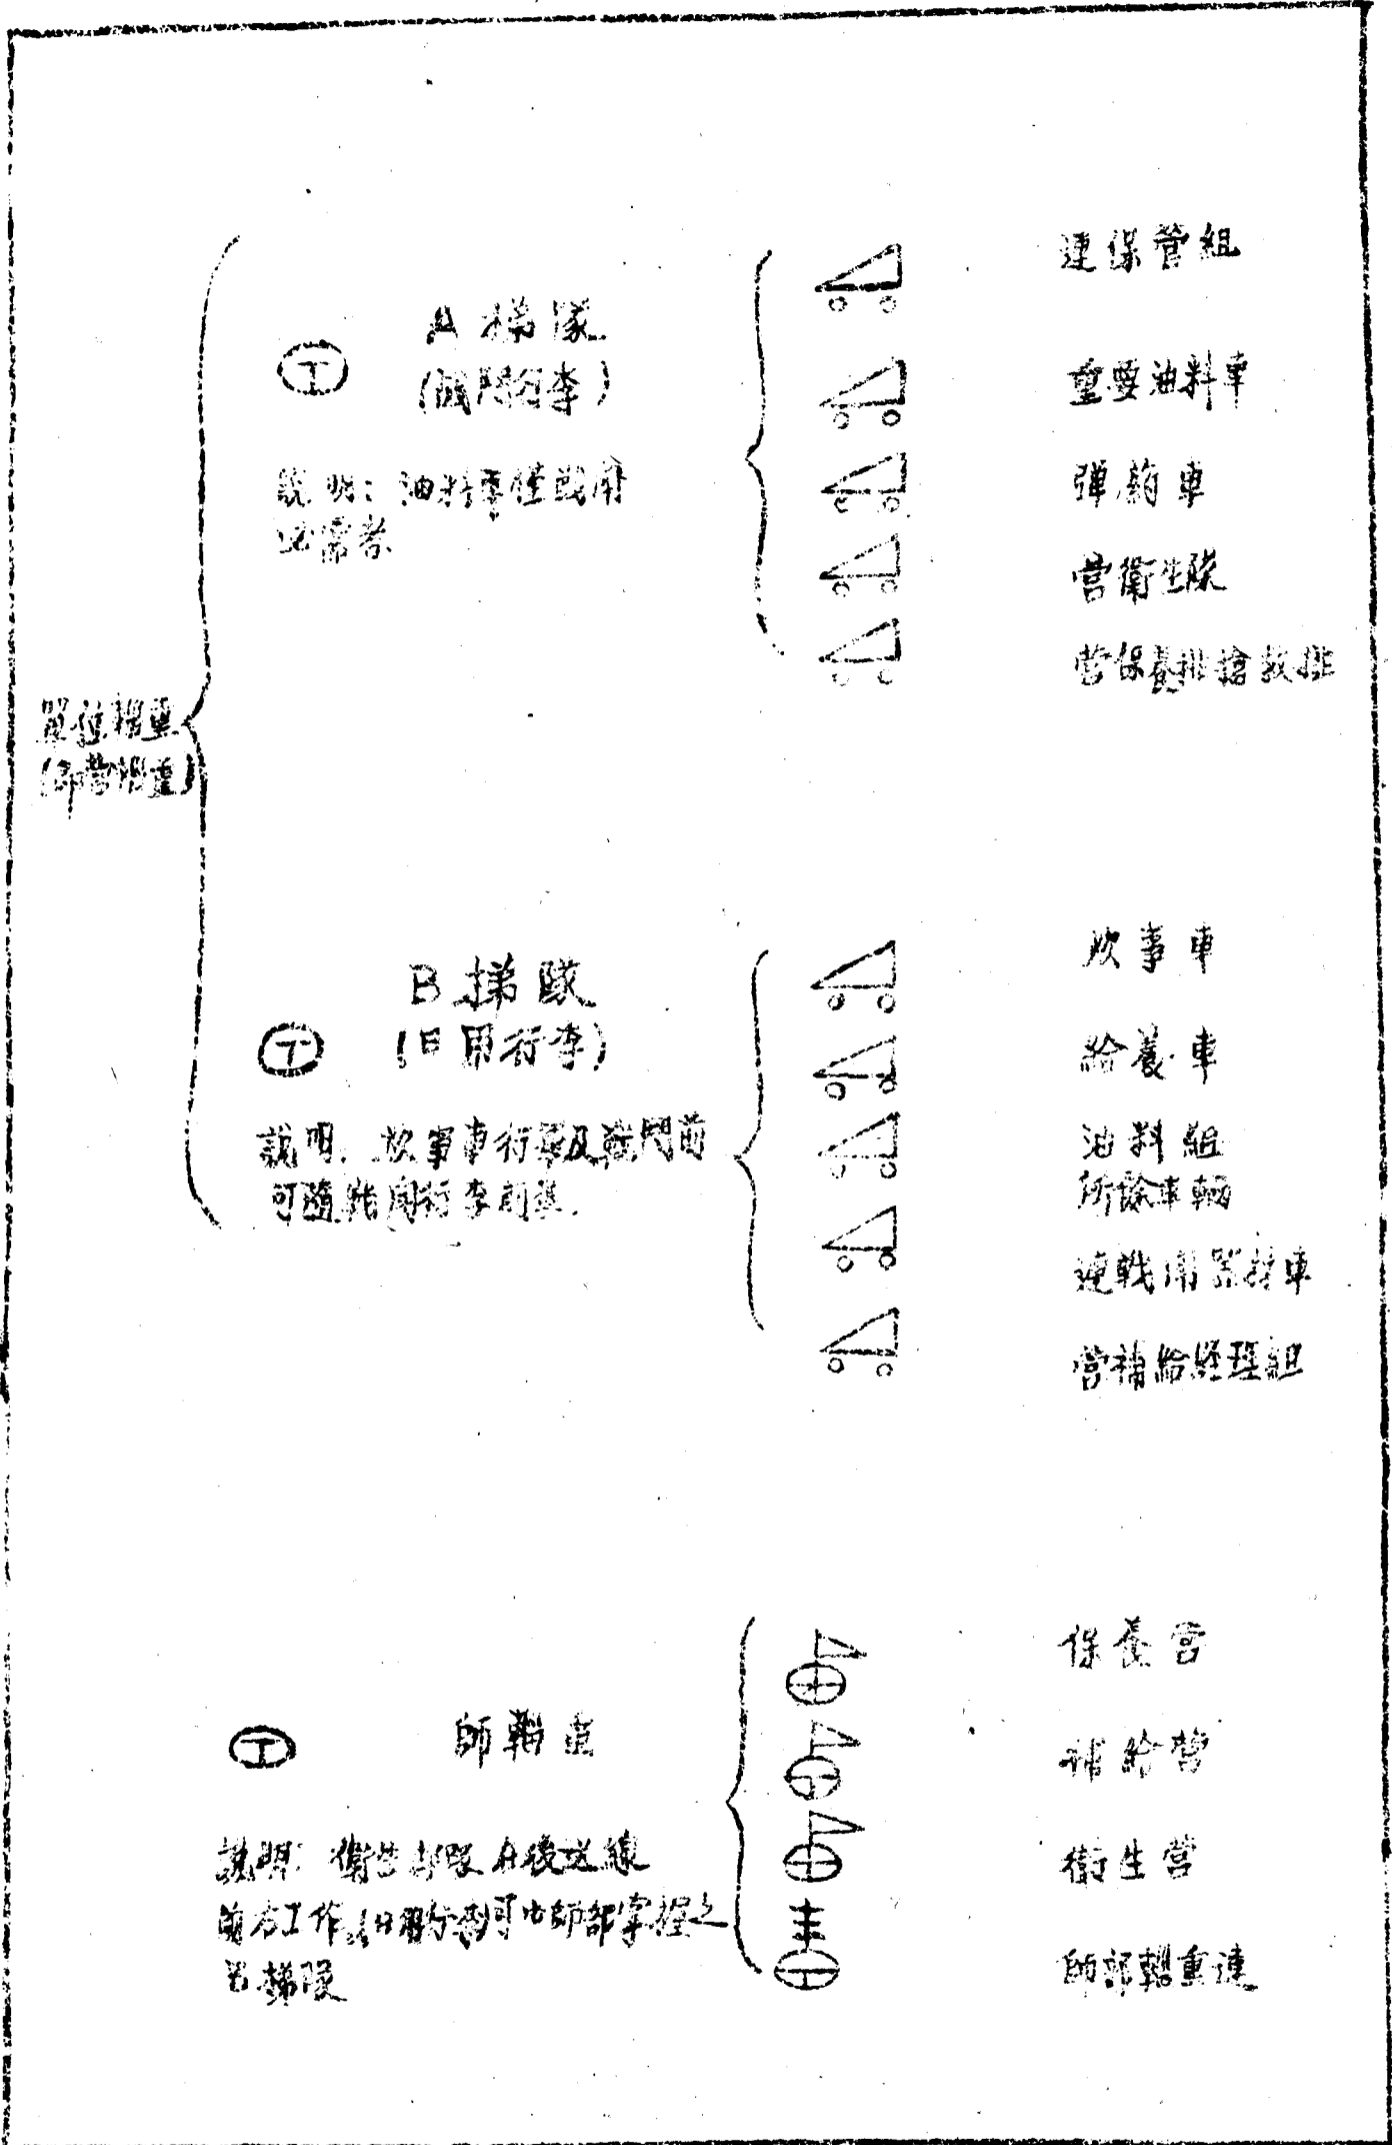 單位輜重
(即營輜重)
A 梯隊
(戰鬥行李)
說明：油料車僅戰鬥
必需者
連保管組
重要油料車
彈葯車
營衛生隊
營保養排搶救排
B 梯隊
(日用行李)
說明：炊事車行軍及戰鬥前
可隨戰鬥行李前進
炊事車
給養車
油料組
所餘車輛
連戰用器材車
營補給經理組
師輜重
說明：衛生部隊在後送線
前方工作(日用行李)可由師部掌握之
B梯隊
保養營
補給營
衛生營
師部輜重連